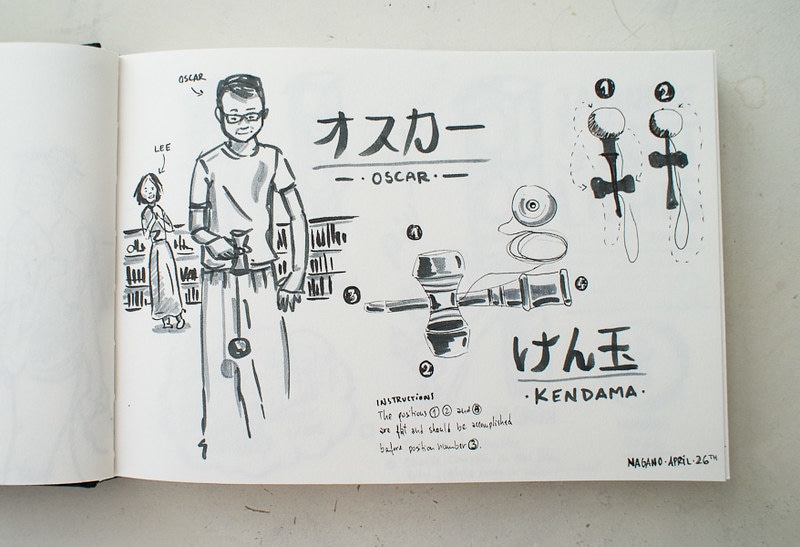 OSCAR
LEE
オスカー
- OSCAR -
1
2
1
2
3
4
けん玉
· KENDAMA ·
INSTRUCTIONS
The positions 1 2 and 4
are flat and should be accomplished
before position number 3.
NAGANO · APRIL · 26TH